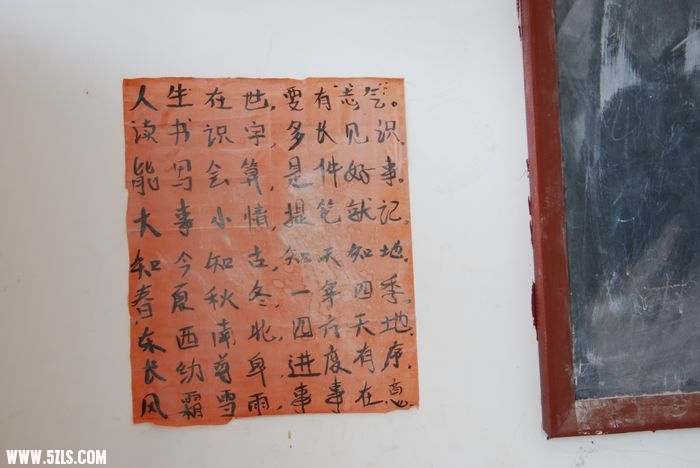 人生在世,要有志气。
读书识字,多长见识.
能写会算,是件好事.
大事小情,提笔就记,
知今知古,知天知地.
春夏秋冬,一年四季.
东西南北,四方天地.
长幼尊卑,进度有序.
风霜雪雨,事事在意
WWW.5ZLS.COM